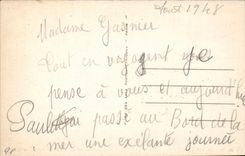 Aout 1948
Madame Gasnier
Tout en voyageant je
pense à vous et aujourd'hui
j'ai passé au Bord de la
mer une exélante journée